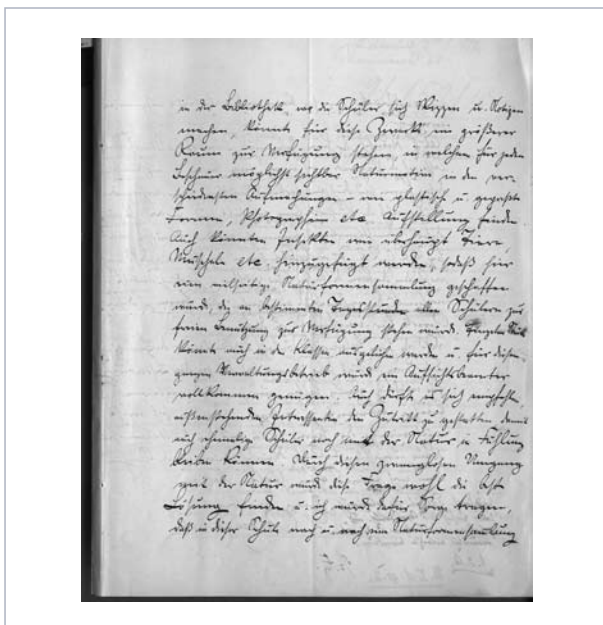 in der Bibliothek, wo die Schüler sich Skizzen u. Notizen
machen, könnte für diese Zwecke ein größerer
Raum zur Verfügung stehen, in welchem für jeden
Beschauer möglichst sichtbar Naturmotive in den ver-
schiedensten Aufmachungen - wie plastisch u. gepreßte
Formen, Photographien etc. Aufstellung finden.
Auch könnten Insekten wie überhaupt Tiere,
Muscheln etc. hinzugefügt werden, sodaß hier
eine vielseitige Naturformensammlung geschaffen
würde, die an bestimmten Tagesstunden allen Schülern zur
freien Benützung zur Verfügung stehen würde. Einzelne Stücke
könnte auch in die Klassen ausgeliehen werden u. für diesen
ganzen Verwaltungsbetrieb würde ein Aufsichtsbeamter
vollkommen genügen. Auch dürfte es sich empfehlen,
außenstehenden Interessenten den Zutritt zu gestatten damit
auch ehemalige Schüler noch mit der Natur in Fühlung
bleiben können. Durch diesen zwanglosen Umgang
mit der Natur würde diese Frage wohl die beste
Lösung finden u. ich würde dafür Sorge tragen,
daß in dieser Schule nach u. nach eine Naturformensammlung